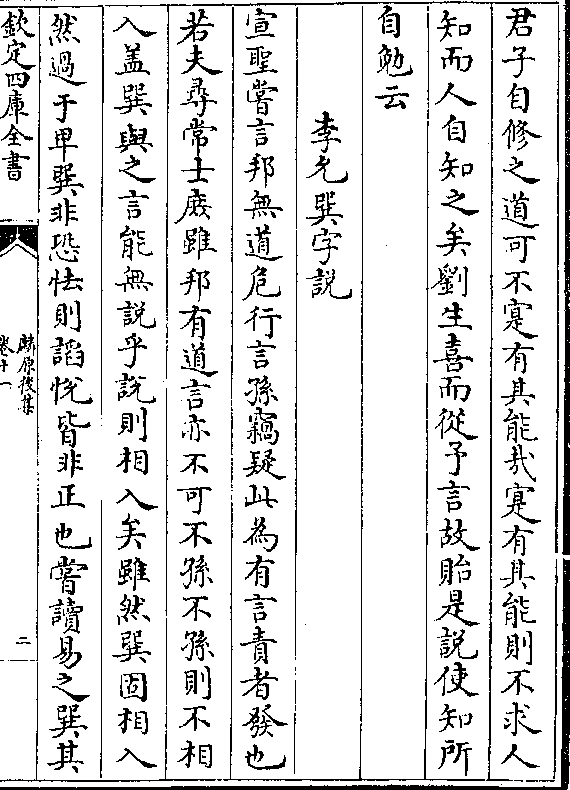 君子自修之道可不寔有其能哉寔有其能則不求人
知而人自知之矣劉生喜而從予言故貽是説使知所
自勉云
李允巽字説
宣聖嘗言邦無道危行言孫竊疑此為有言責者發也
若夫尋常士庻雖邦有道言亦不可不孫不孫則不相
入盖巽與之言能無説乎説則相入矣雖然巽固相入
然過于卑巽非恐怯則謟悅皆非正也嘗讀易之巽其
欽定四庫全書
麟原後集
卷十一
二